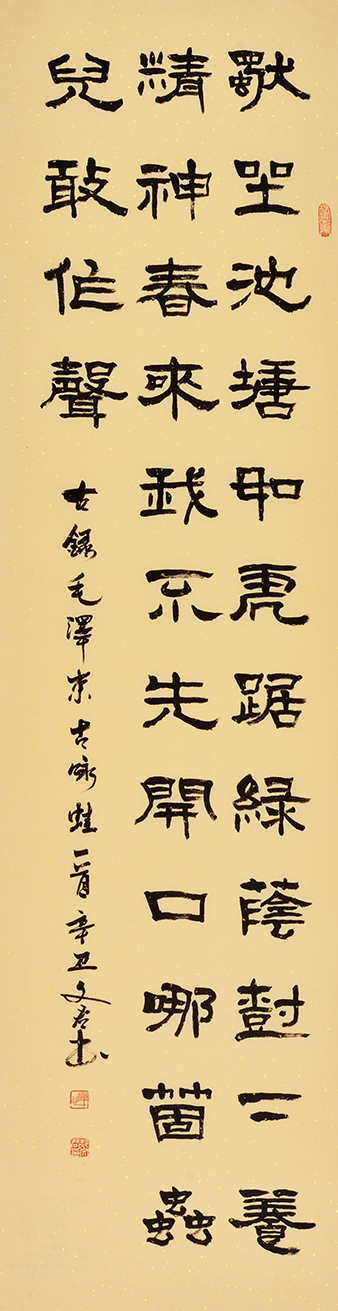 獨坐池塘如虎踞綠蔭尌下養
精神春來我不先開口哪箇蟲
兒敢作聲
右錄毛澤东古咏蛙一首辛丑文君书